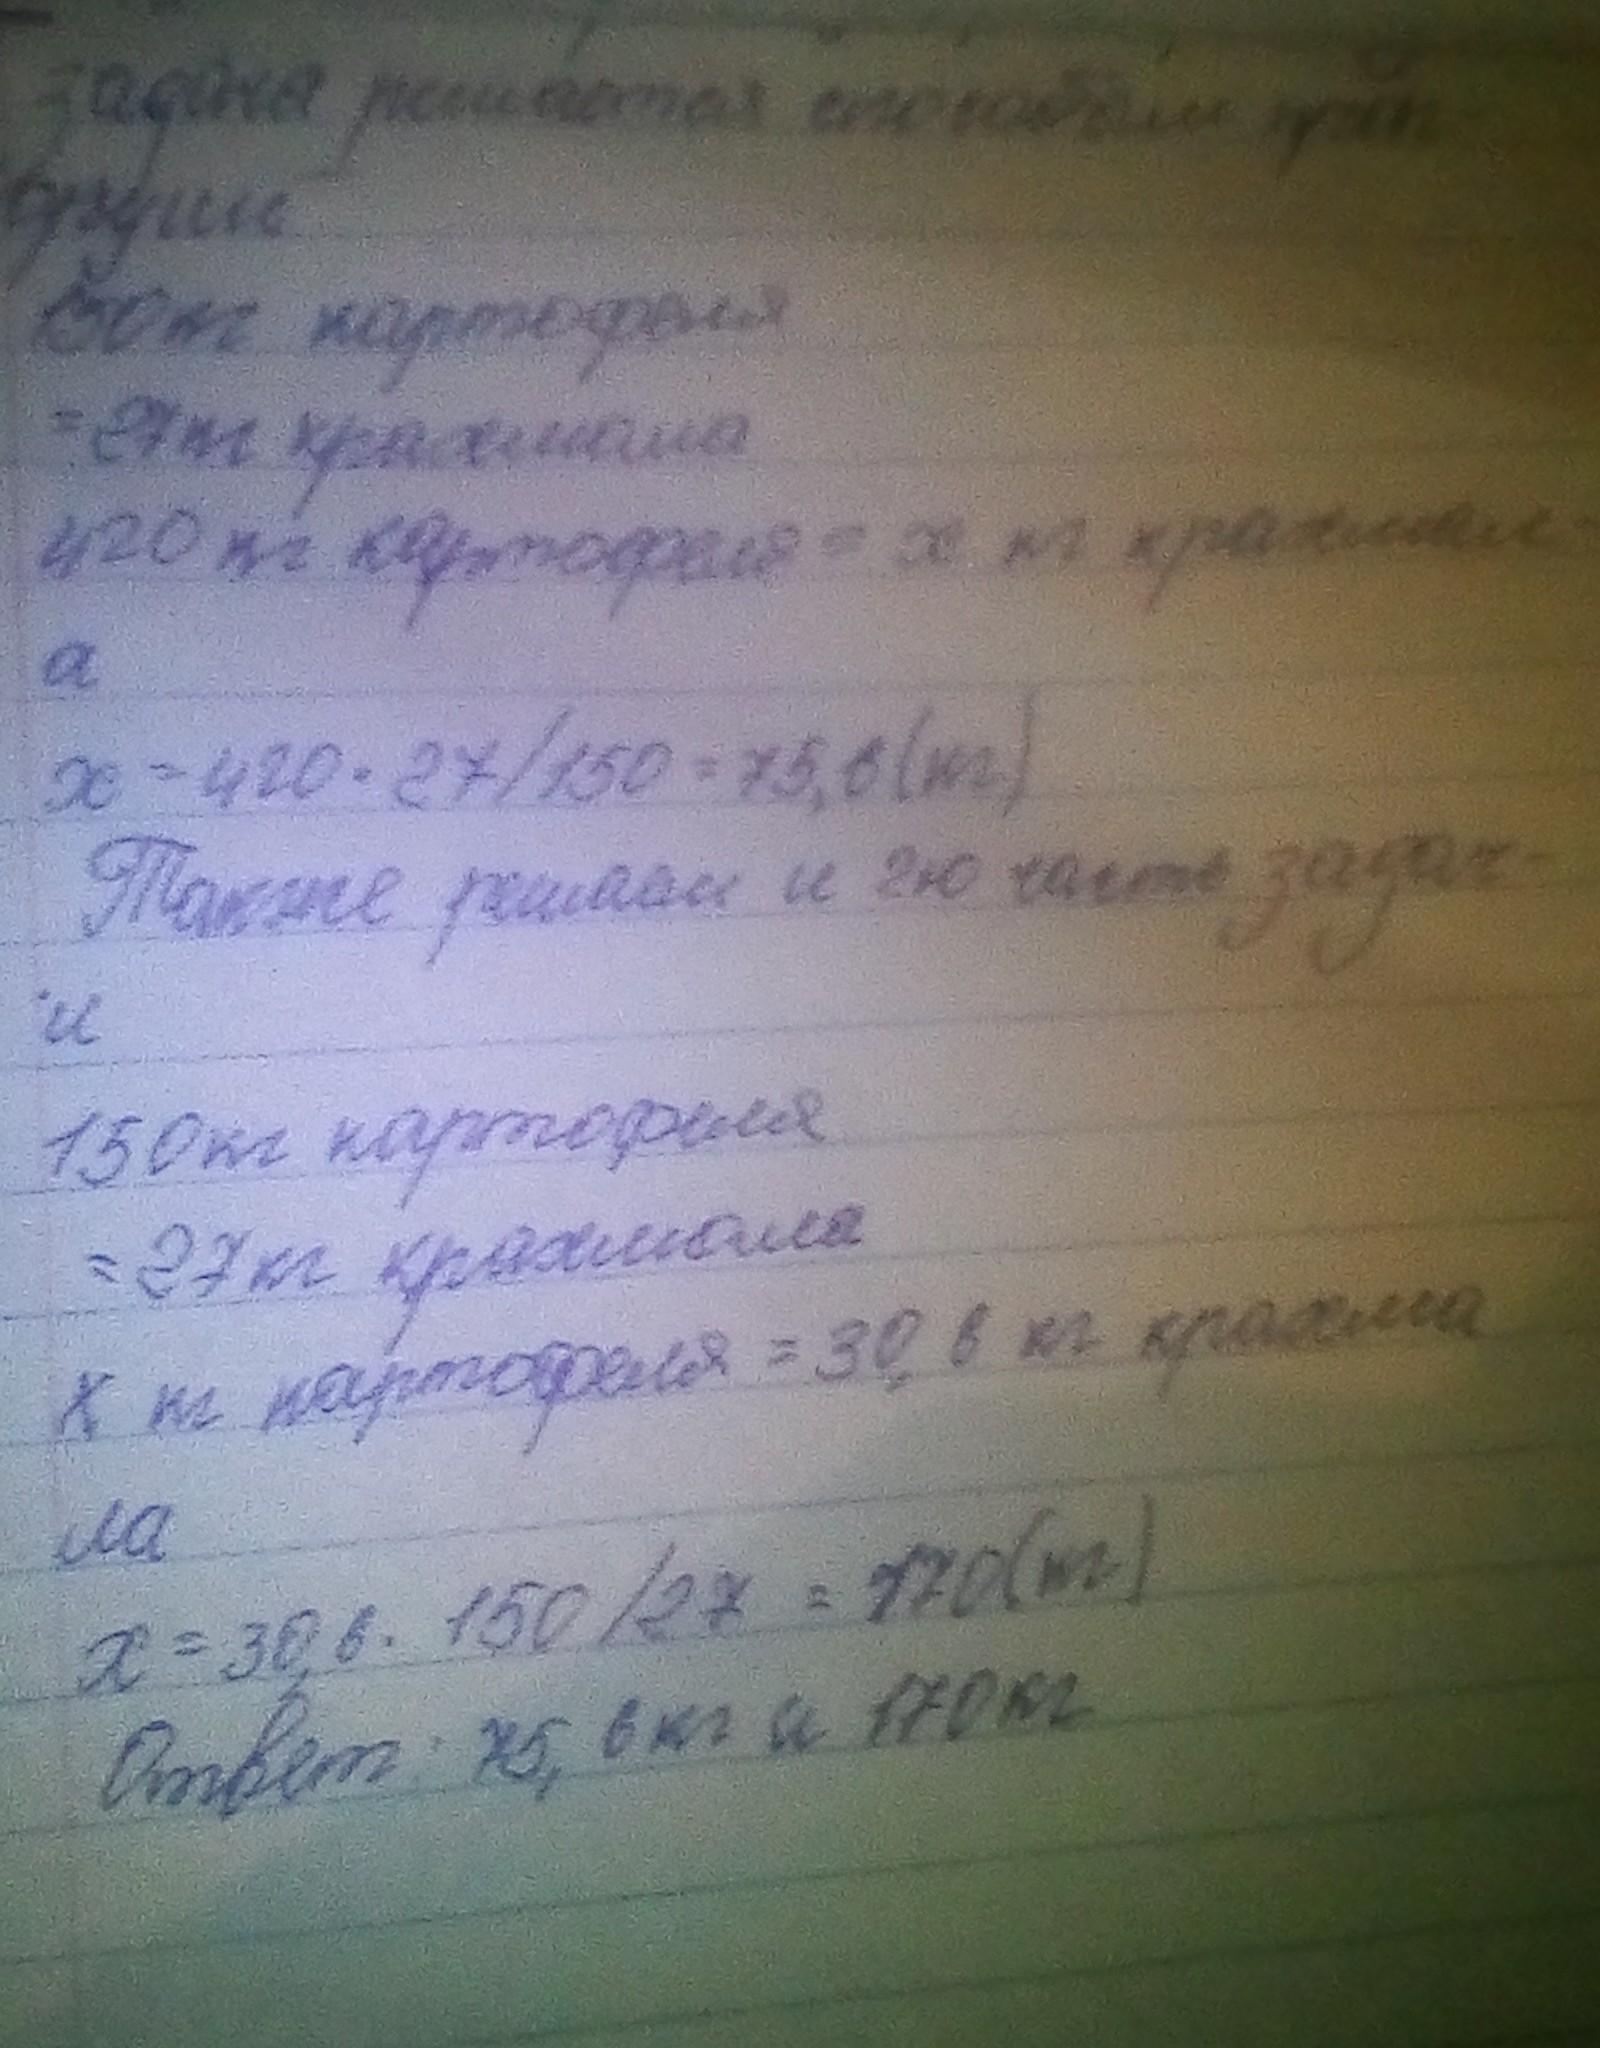 Задача решается способом проп-
орции
150 кг картофеля
= 27 кг крахмала
420 кг картофеля = х кг крахмал-
а
х = 420 · 27/150 = 75,6 (кг)
Также решаем и 2ю часть задач-
и
150 кг картофеля
= 27 кг крахмала
х кг картофеля = 30,6 кг крахма
ла
х = 30,6 · 150/27 = 170 (кг)
Ответ: 75,6 кг и 170 кг